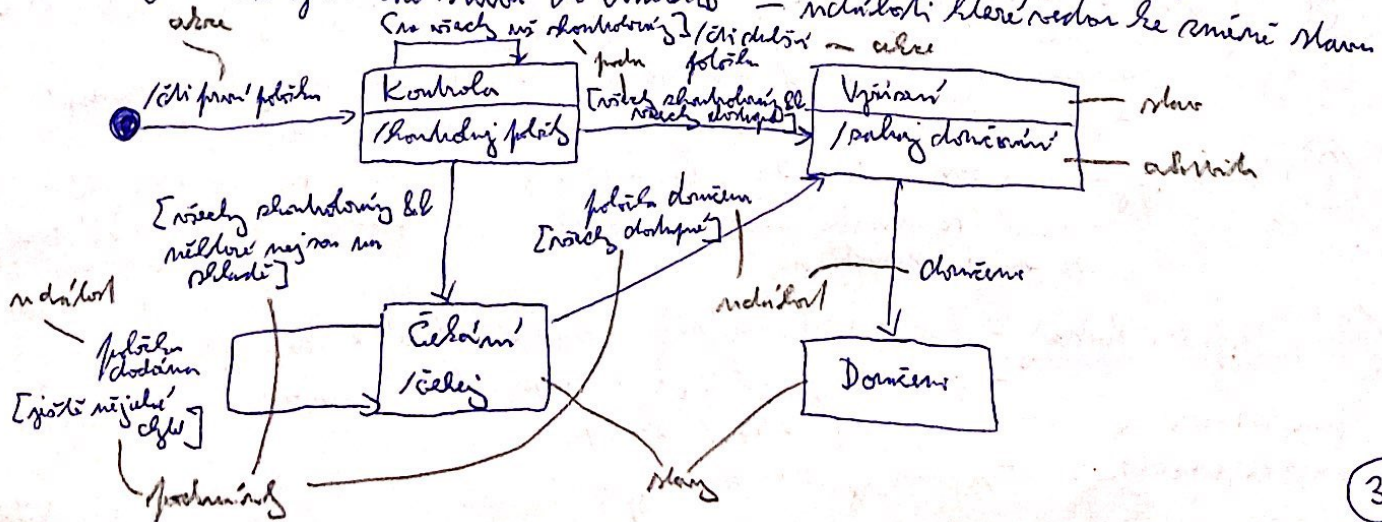 události které vedou ke změně stavu
akce
/čti další položku
akce
/čti první položku
Kontrola
/zkontroluj položky
[všechny zkontrolovány &&
všechny dostupné]
Vyřízení
/zahaj doručování
stav
aktivita
[všechny zkontrolovány &&
některé nejsou na
skladě]
položka doručena
[všechny dostupné]
událost
doručeno
událost
položka
dodána
[ještě nějaké
chybí]
Čekání
/čekej
Doručeno
podmínky
stavy
3